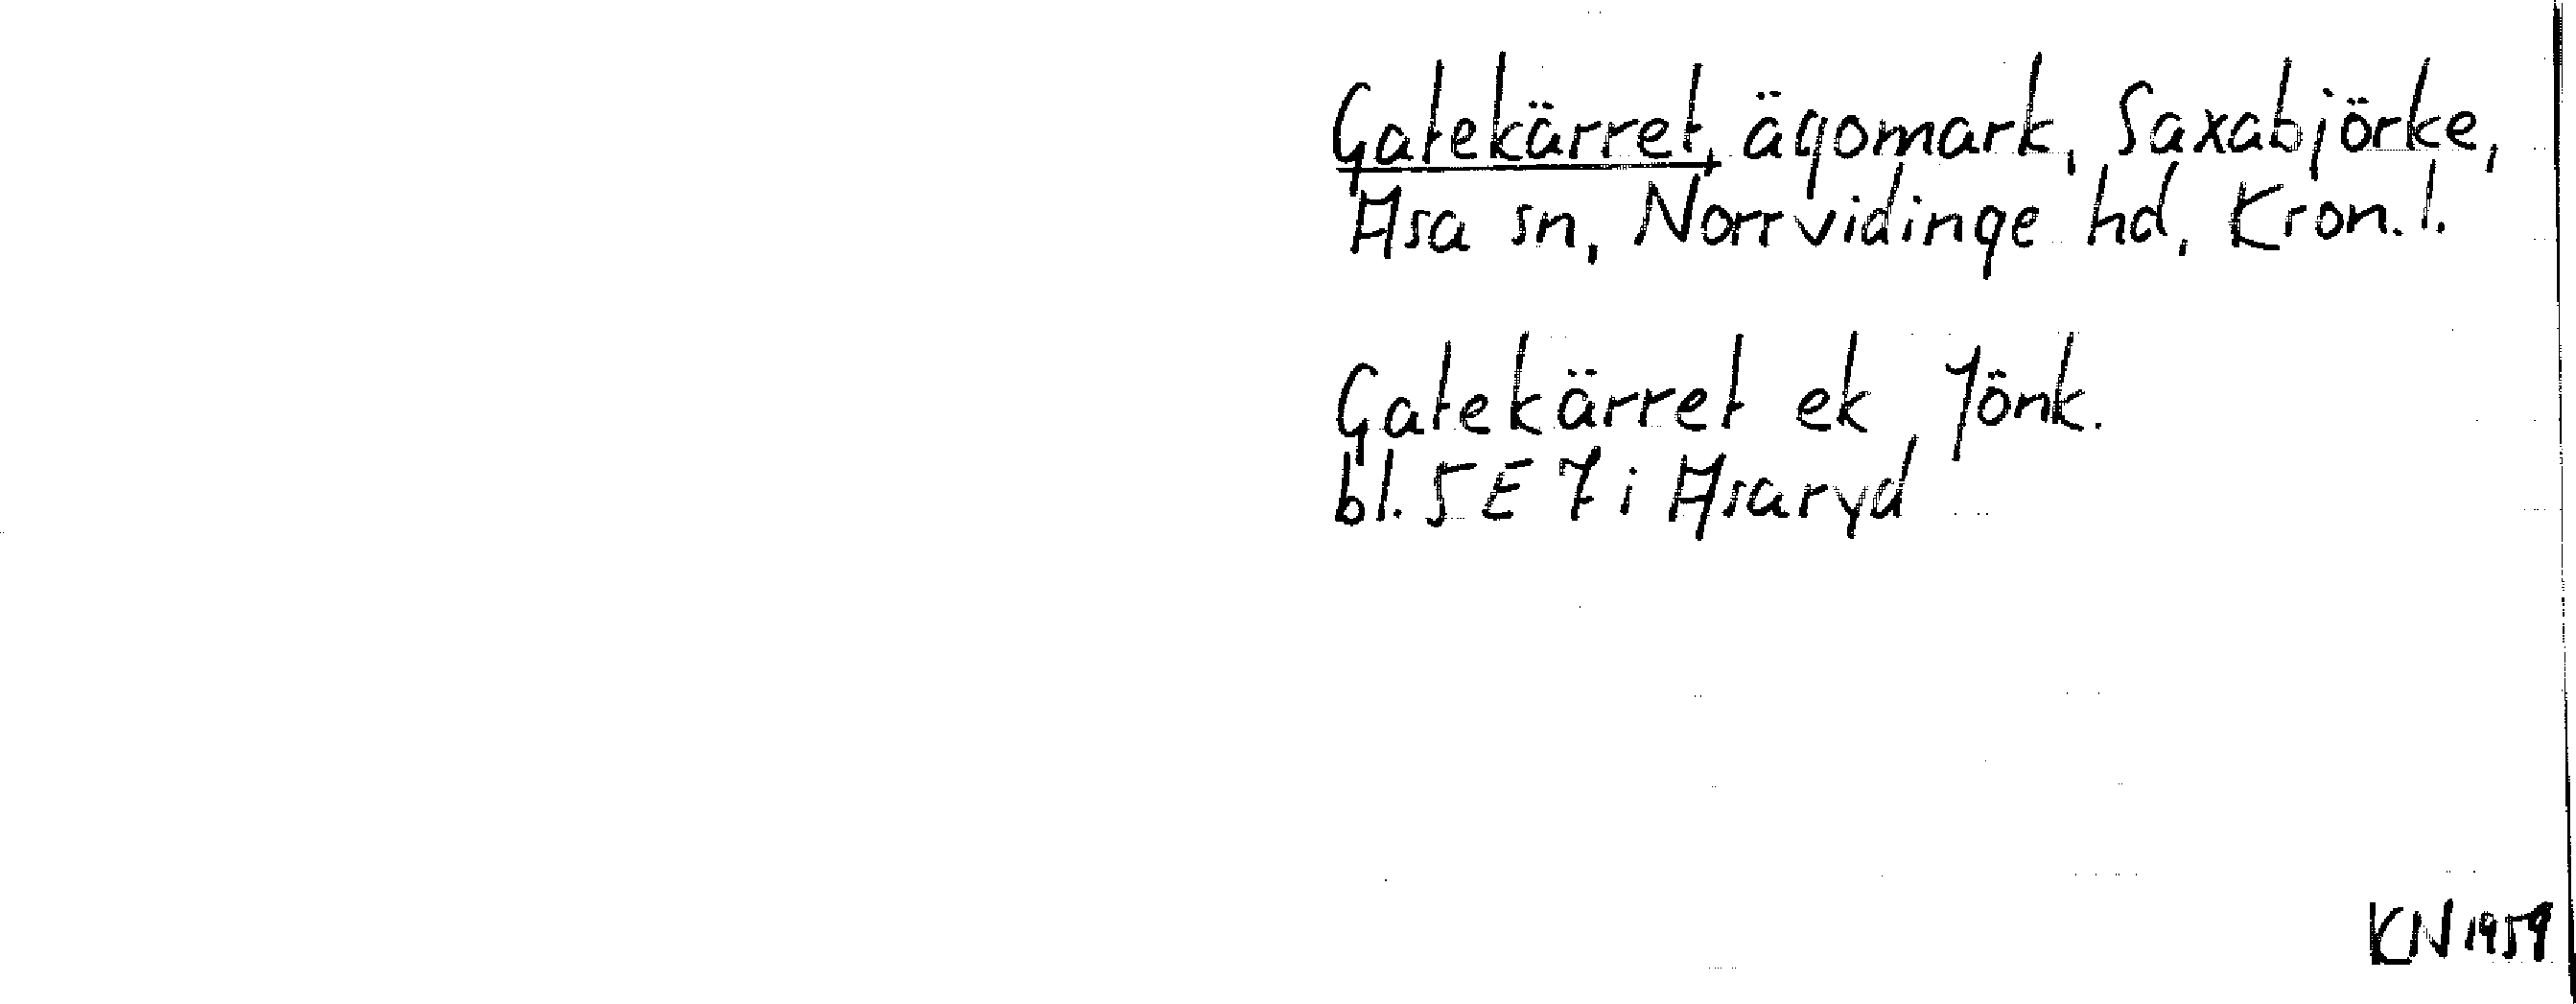 Gatekärret, ägomark, Saxabjörke,
Asa sn, Norrvidinge hd, Kron. l.
Gatekärret ek Jönk.
bl. 5 E 7 i Asaryd
KN 1959